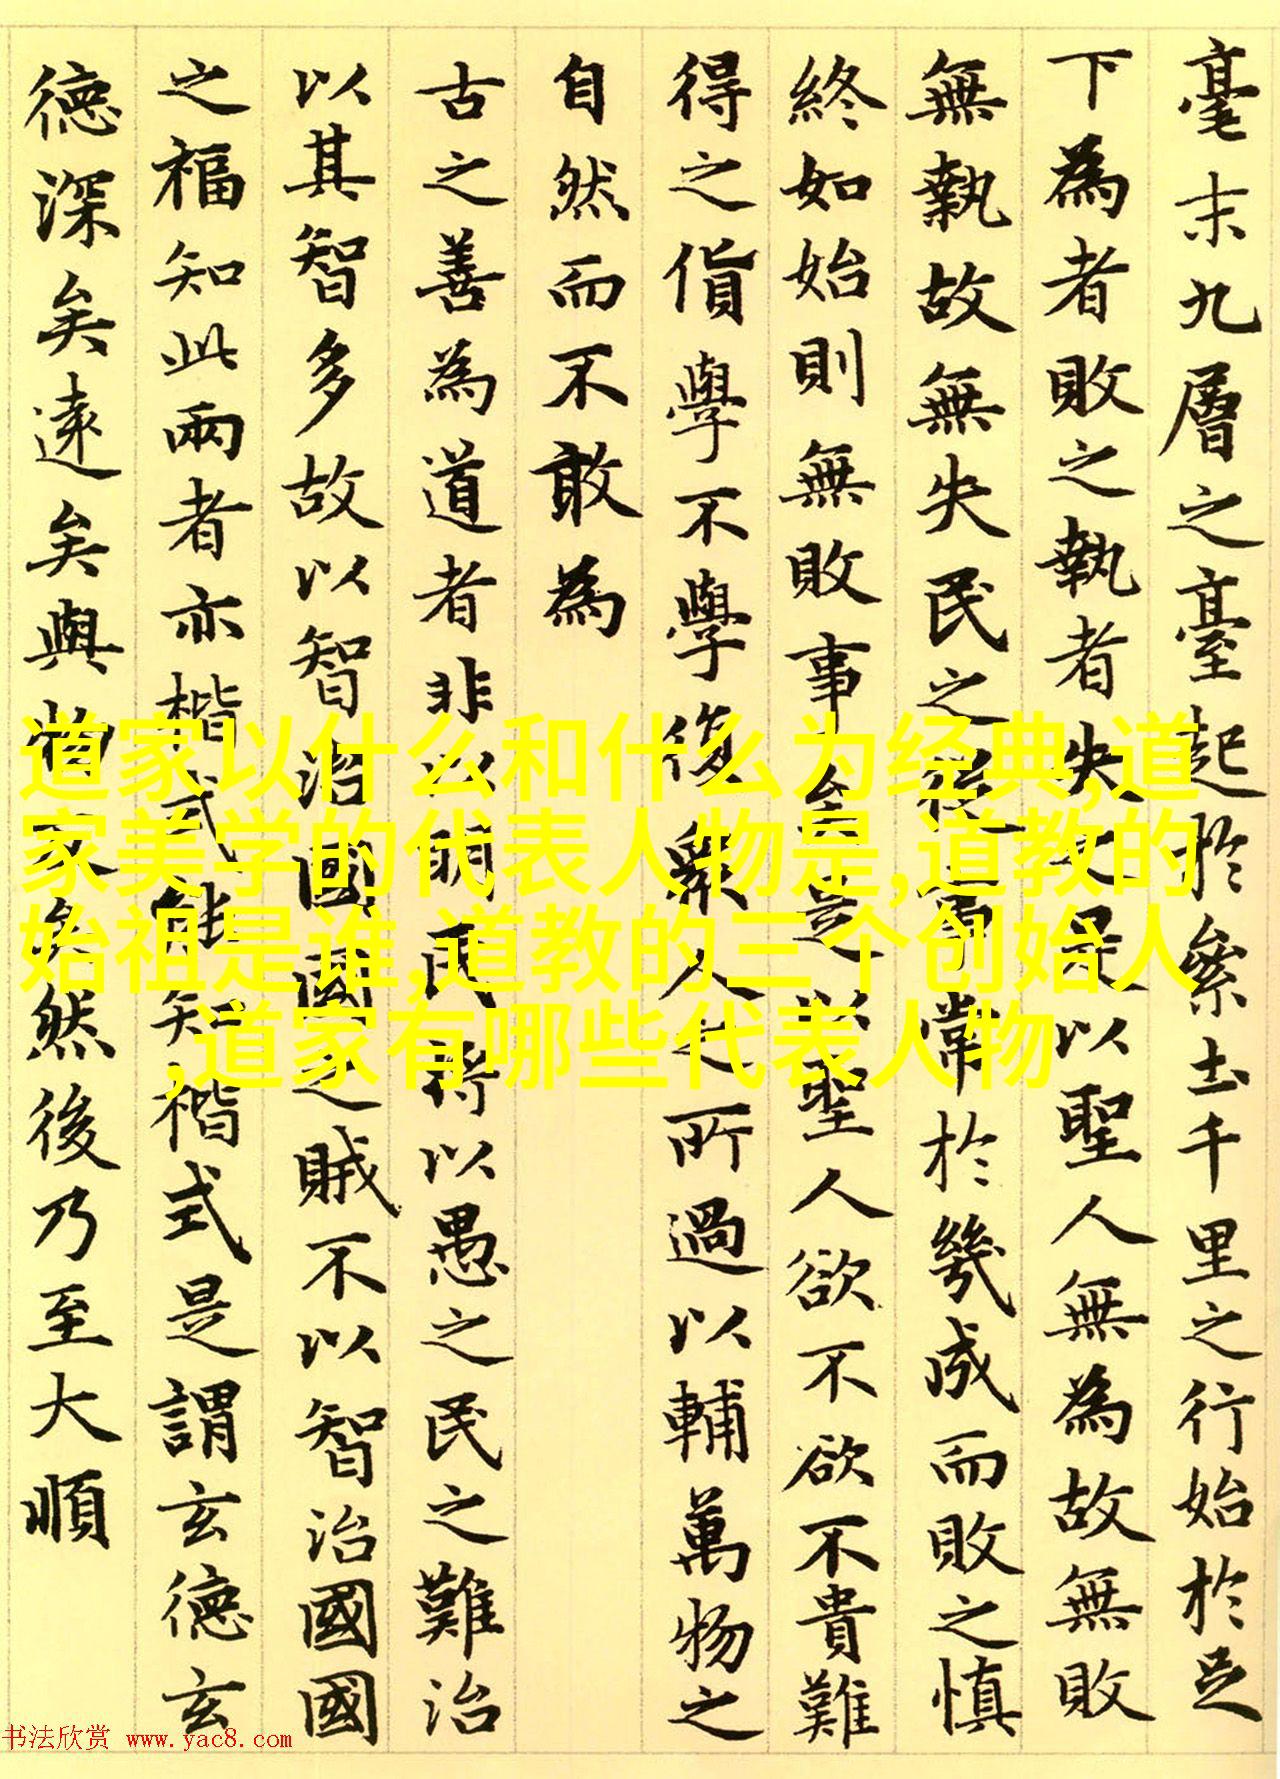 毫末九層之臺起於絫土千里之行始於足
下為者敗之執者失之是以聖人無為故無敗
無執故無失民之從事常於幾成而敗之慎
終如始則無敗事是以聖人欲不欲不貴難
得之貨學不學復衆人之所過以輔萬物之
自然而不敢為
古之善為道者非以明民将以愚之民之難治
以其智多故以智治國國之賊不以智治國國
之福知此兩者亦楷式能知楷式是謂玄德玄
德深矣遠矣與物反矣然後乃至大順
道家以什么和什么为经典,道
家美学的代表人物是,道教的
始祖是谁,道教的三个创始人
,道家有哪些代表人物
书法欣赏 www.yac8.com